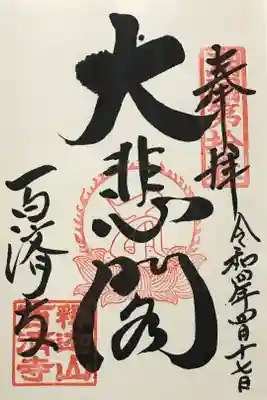 奉拝
令和四年四月十七日
大悲閣
百済寺
釈迦山
百済寺